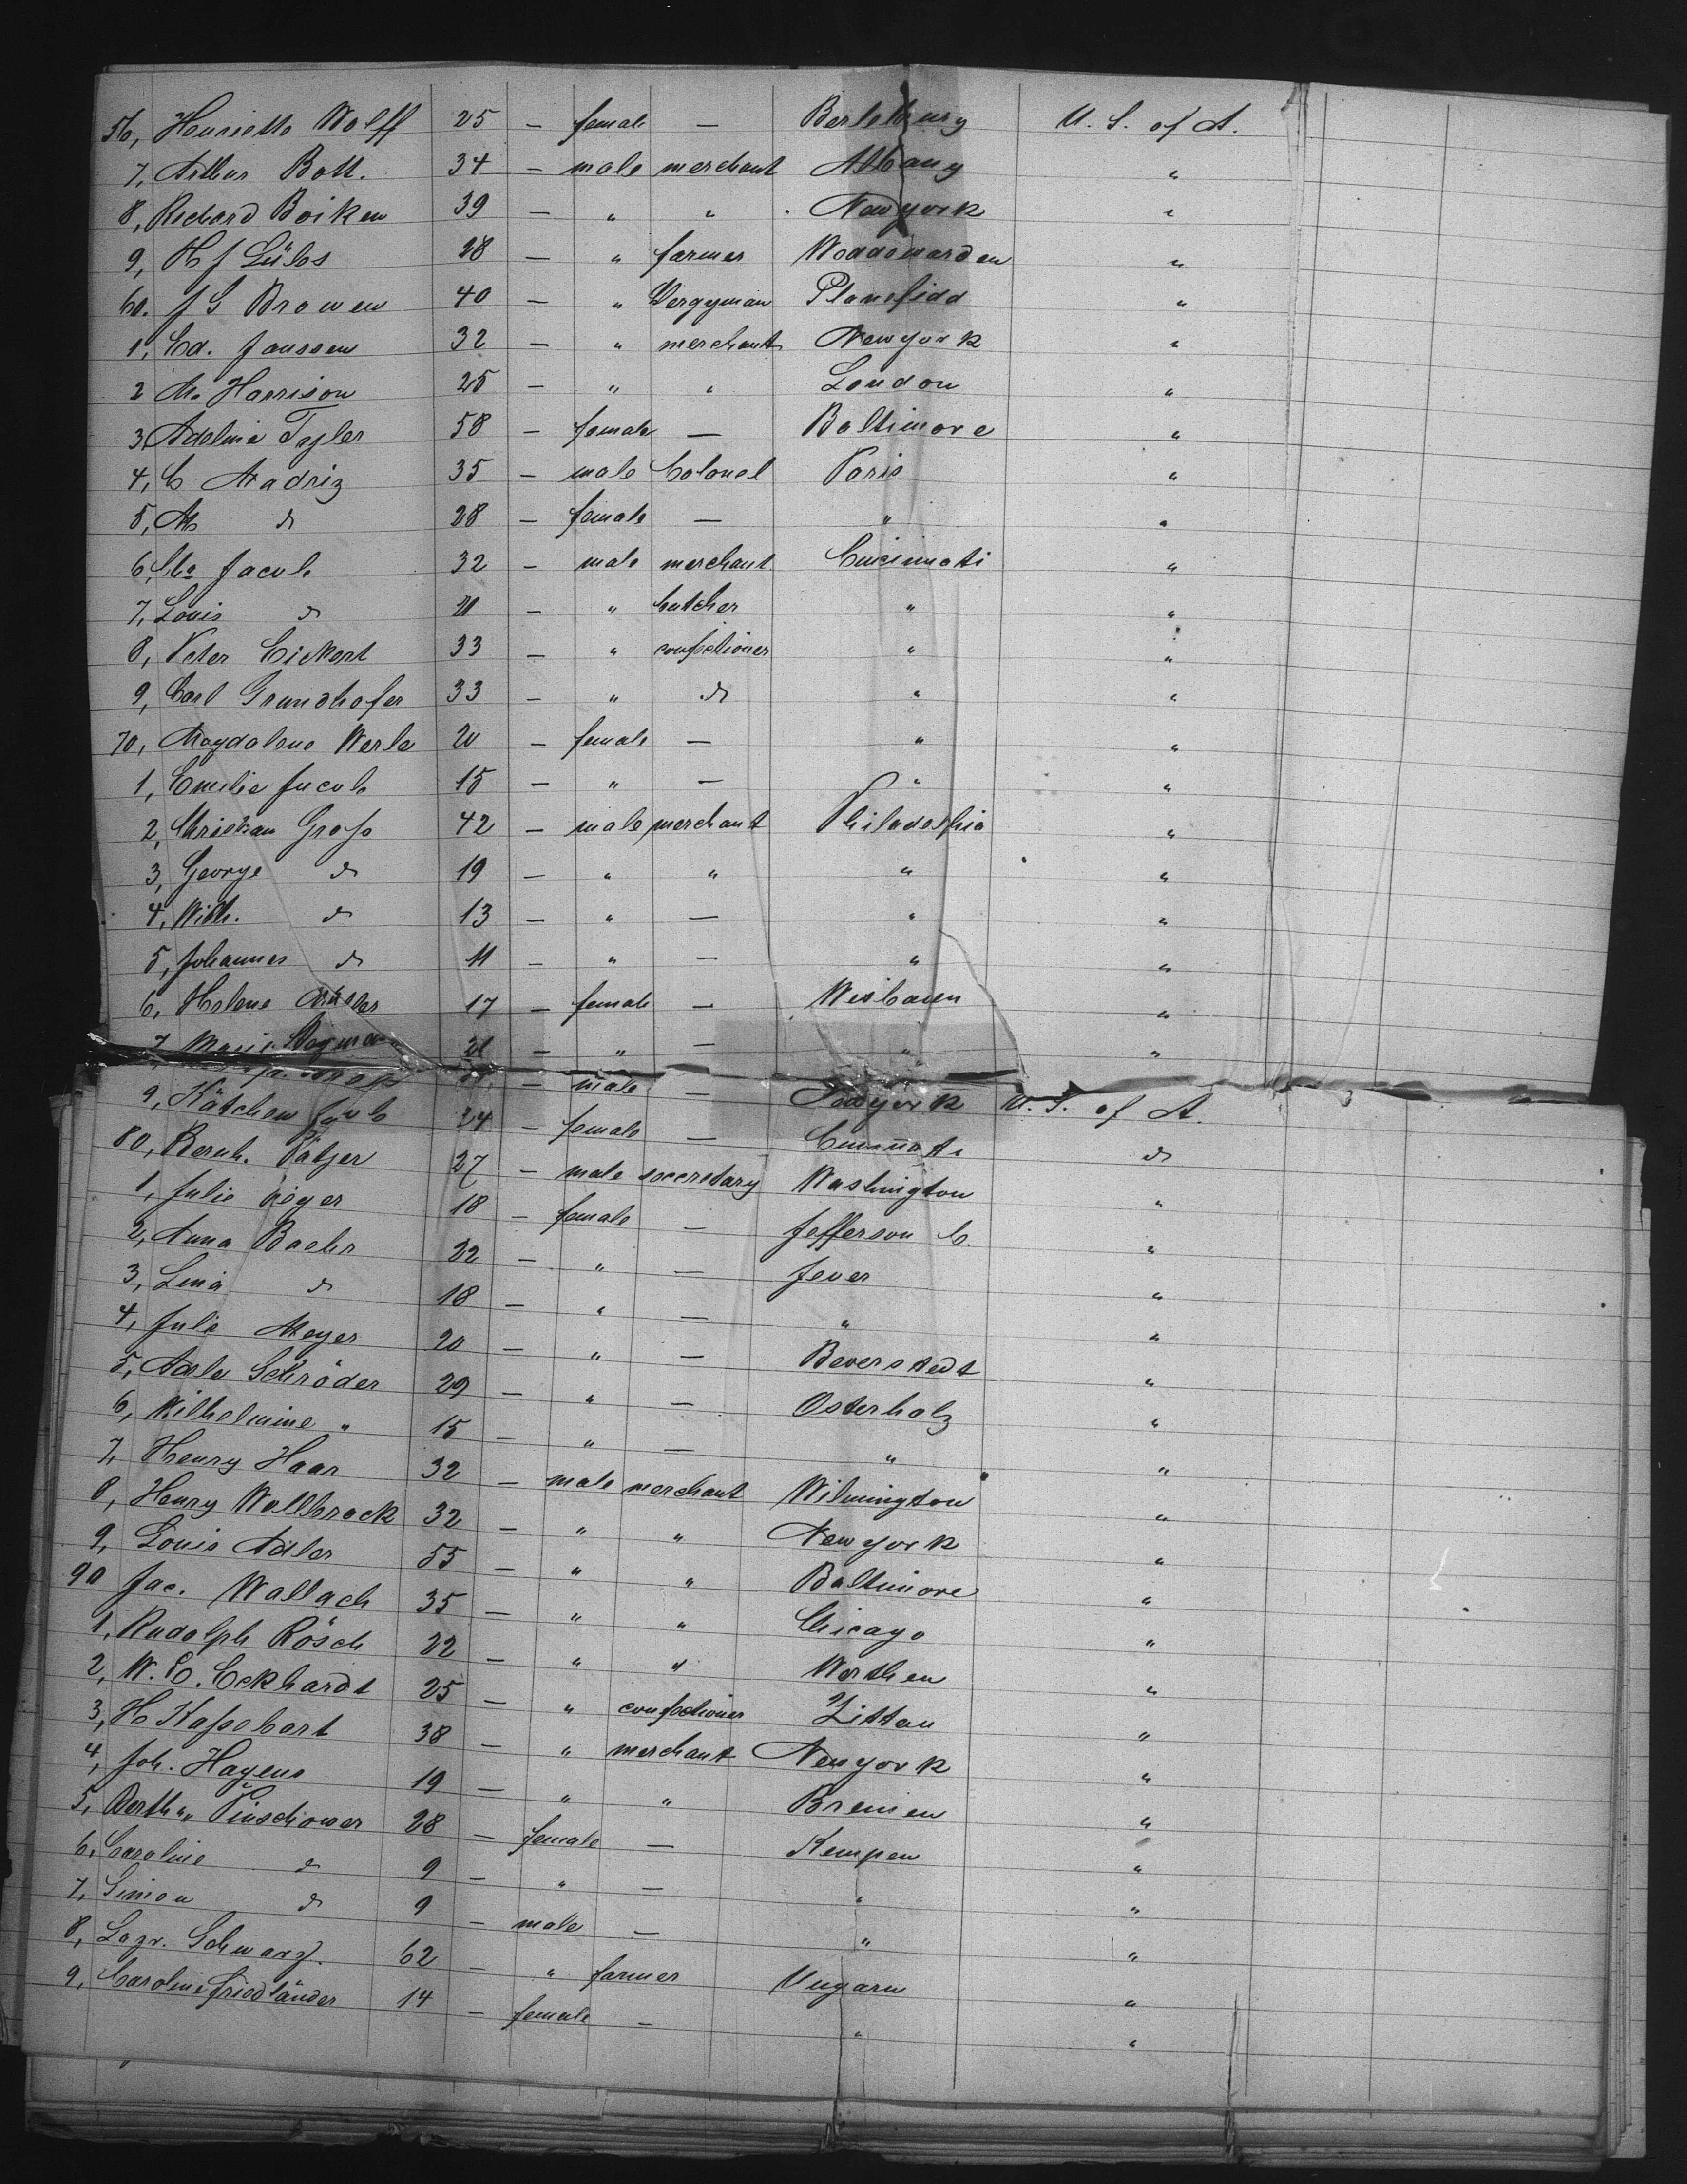 56, Henriette Wolff 25 — female — Berleburg U. S. of A.
7, Arthur Bott. 34 — male merchant Albany "
8, Richard Boiken 39 — " " New york "
9, H J Lülos 28 — " farmer Woddewarden "
60. J G Browen 40 — " Clergyman Planefidd "
1, Ed. Janssen 32 — " merchant New york "
2 M. Harrison 25 — " " London "
3, Adeline Tayler 58 — female — Baltimore "
4, C Madriz 35 — male Colonel Paris "
5, M do 28 — female — " "
6, Jacob 32 — male merchant Cincinnati "
7, Louis do 21 — " butcher " "
8, Peter Eickert 33 — " confectioner " "
9, Carl Grundhofer 33 — " do " "
70, Magdalene Werle 20 — female — " "
1, Emilie Jacob 15 — " — " "
2, Christian Groß 42 — male merchant Philadelphia "
3, George do 19 — " " " "
4, Wilh. do 13 — " — " "
5, Johannes do 11 — " — " "
6, Helene 17 — female — Wisbaden "
7, Marie 21 — " — " "
— male — New york U. S. of A.
9, Kätchen Jacob 24 — female — Cincinnati do
80, Bernh. Pätzer 27 — male seccretary Washington "
1, Julie Rieger 18 — female — Jefferson C. "
2, Anna Baehr 22 — " — Jever "
3, Lina do 18 — " — " "
4, Julie Meyer 20 — " — Beverstedt "
5, Adele Schröder 29 — " — Osterholz "
6, Wilhelmine " 15 — " — " "
7, Henry Haar 32 — male merchant Wilmington "
8, Henry Wallbrock 32 — " " New york "
9, Louis Adler 55 — " " Baltimore "
90 Jac. Wallach 35 — " " Chicago "
1, Rudolph Rösch 22 — " " Worthen "
2, W. C. Eckhardt 25 — " confectioner Zittau "
3, H Kaßebart 38 — " merchant New york "
4, Joh. Hagens 19 — " " Bremen "
5, Bertha Pinschower 28 — female — Kempen "
6, Caroline do 9 — " — " "
7, Simon do 9 — male — " "
8, Lazr. Schwarz. 62 — " farmer Ungarn "
9, Caroline Friedländer 14 — female — " "